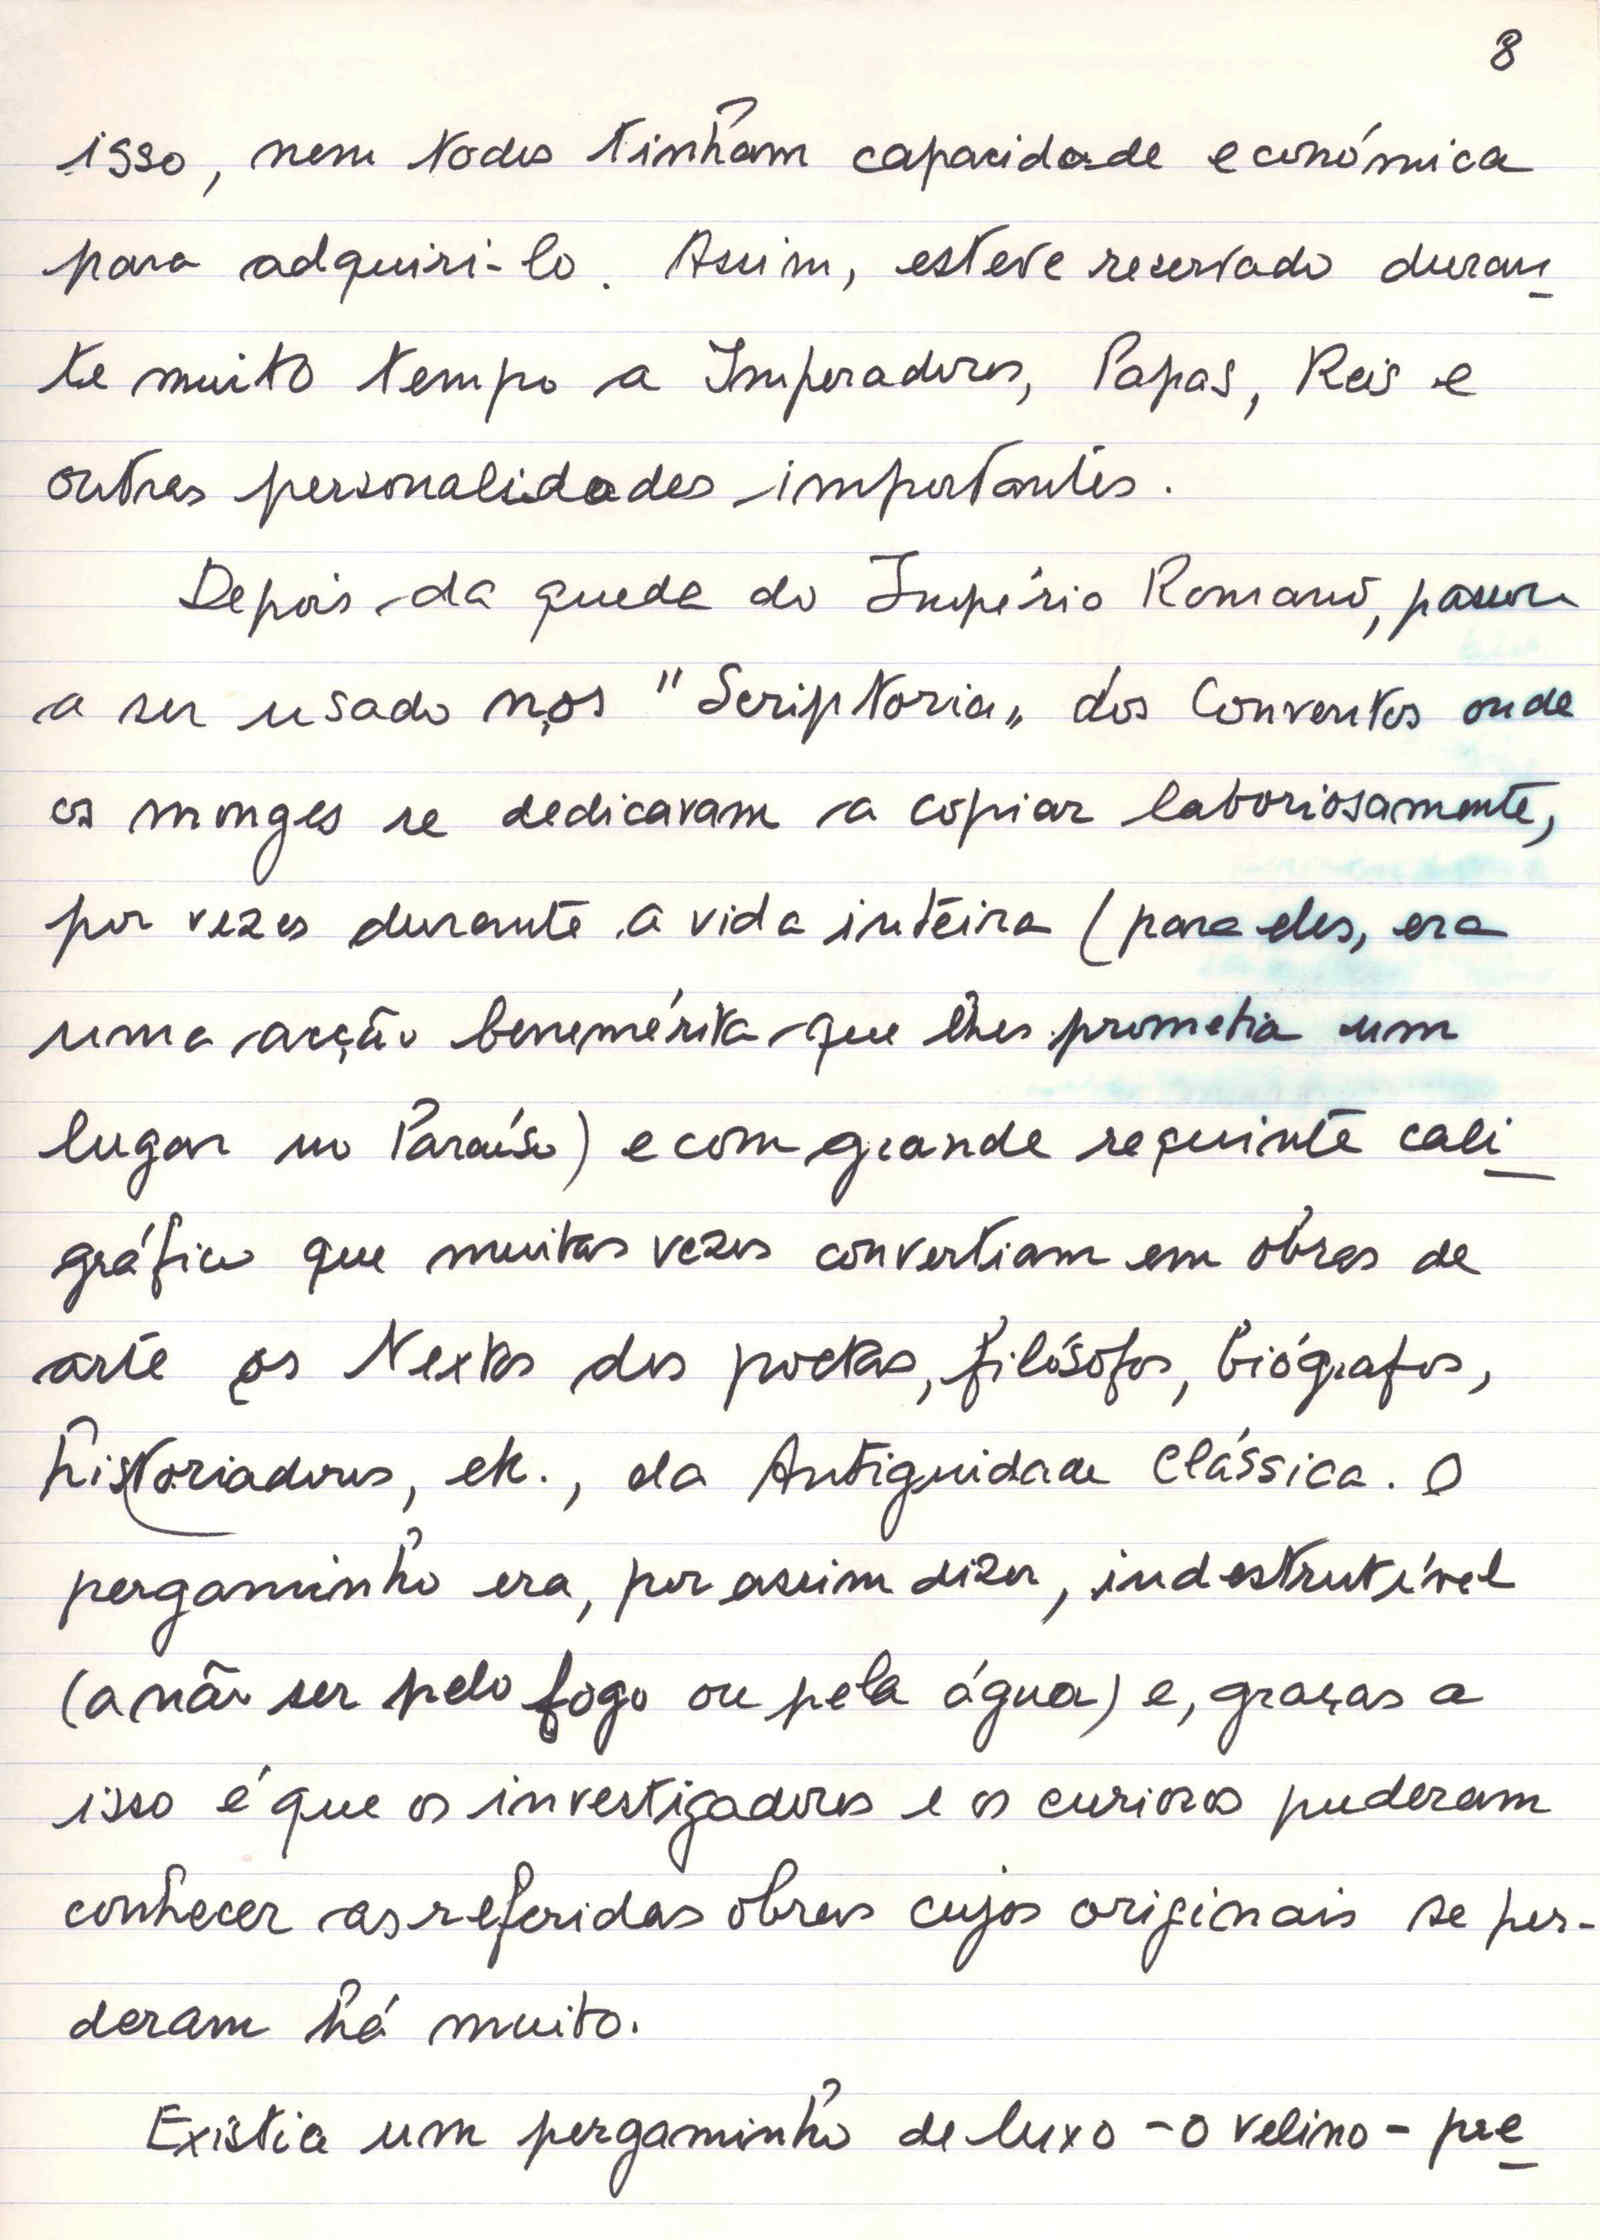 8
isso, nem todos tinham capacidade económica
para adquiri-lo. Assim, esteve reservado duran_
te muito tempo a Imperadores, Papas, Reis e
outras personalidades importantes.
Depois da queda do Império Romano, passou
a ser usado nos "Scriptoria" dos Conventos onde
os monges se dedicavam a copiar laboriosamente,
por vezes durante a vida inteira (para eles, era
uma acção benemérita que lhes prometia um
lugar no Paraíso) e com grande requinte cali_
gráfico que muitas vezes convertiam em obras de
arte os textos dos poetas, filósofos, biógrafos,
historiadores, etc., da Antiguidade Clássica. O
pergaminho era, por assim dizer, indestrutível
(a não ser pelo fogo ou pela água) e, graças a
isso é que os investigadores e os curiosos puderam
conhecer as referidas obras cujos originais se per-
deram há muito.
Existia um pergaminho de luxo - o velino - pre_